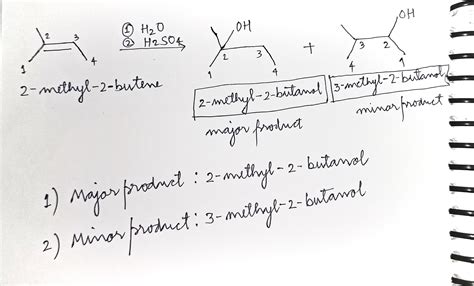 ① H2O
② H2SO4
2 3 1 4
2-methyl-2-butene
OH
2 3 1 4
+
OH
3 2 4 1
2-methyl-2-butanol
major product
3-methyl-2-butanol
minor product
1) Major product : 2-methyl-2-butanol
2) Minor product : 3-methyl-2-butanol